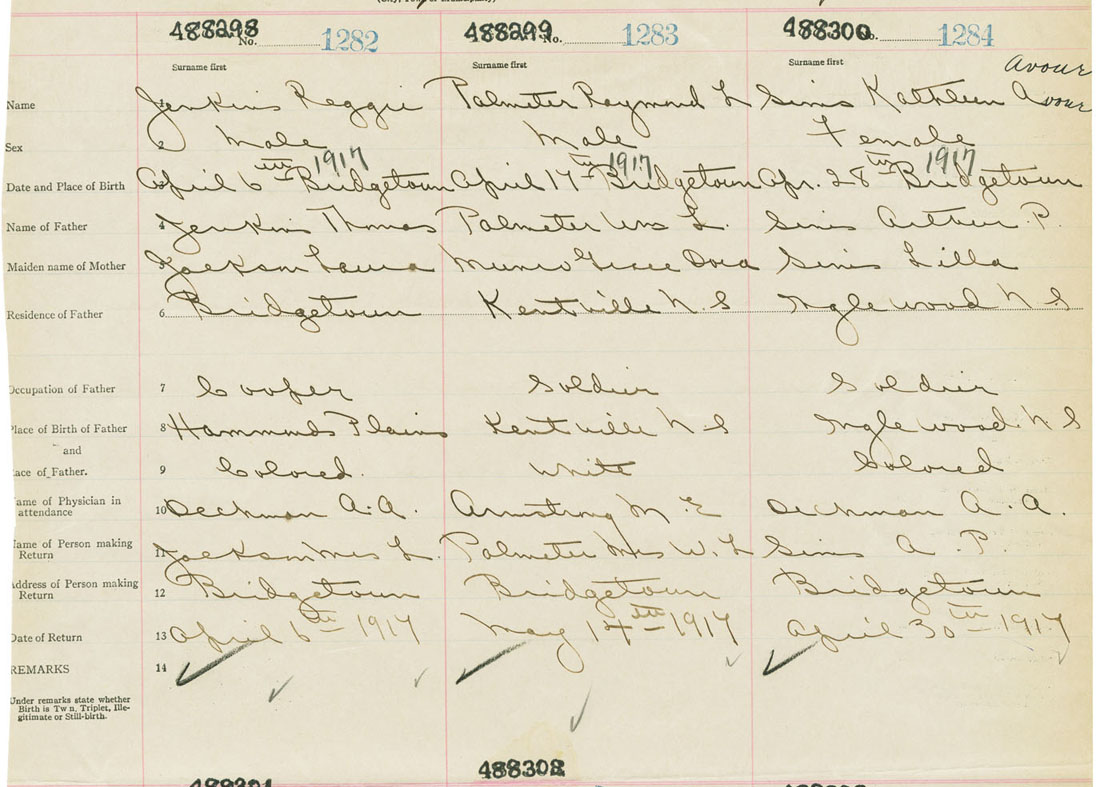 488298 No. 1282 488299 No. 1283 488300 No. 1284
Surname first Surname first Surname first Avour
Name 1 Jenkins Reggie Palmeter Raymond L Sims Kathleen Avour
Sex 2 Male Male Female
1917 1917 1917
Date and Place of Birth 3 April 6th Bridgetown April 17th Bridgetown Apr. 28th Bridgetown
Name of Father 4 Jenkins Thomas Palmeter Wm L. Sims Arthur P.
Maiden name of Mother 5 Jackson Laura Munro Grace Dora Sims Lilla
Residence of Father 6 Bridgetown Kentville N.S Inglewood N S
Occupation of Father 7 Cooper Soldier Soldier
Place of Birth of Father 8 Hammonds Plains Kentville N S Inglewood. N S
and
ace of Father. 9 Colored. White Colored
ame of Physician in
attendance 10 Deckman A.A. Armstrong M. E Deckman A. A.
Name of Person making
Return 11 Jackson Mrs L. Palmeter Mrs W. L Sims A. P.
Address of Person making
Return 12 Bridgetown Bridgetown Bridgetown
Date of Return 13 April 6th 1917 May 14th 1917 April 30th 1917
REMARKS 14
Under remarks state whether
Birth is Tw n, Triplet, Ille-
gitimate or Still-birth.
488302